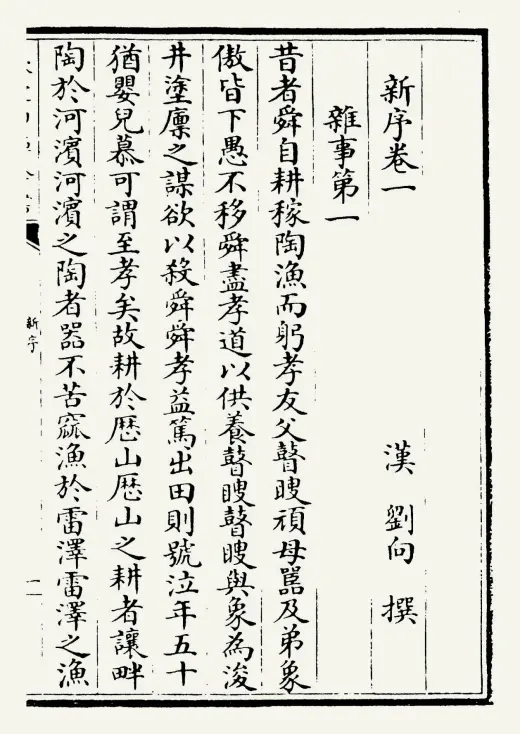 新序卷一
漢 劉向 撰
雜事第一
昔者舜自耕稼陶漁而躬孝友父瞽瞍頑母嚚及弟象
傲皆下愚不移舜盡孝道以供養瞽瞍瞽瞍與象為浚
井塗廩之謀欲以殺舜舜孝益篤出田則號泣年五十
猶嬰兒慕可謂至孝矣故耕於歷山歷山之耕者讓畔
陶於河濱河濱之陶者器不苦窳漁於雷澤雷澤之漁
新序
一